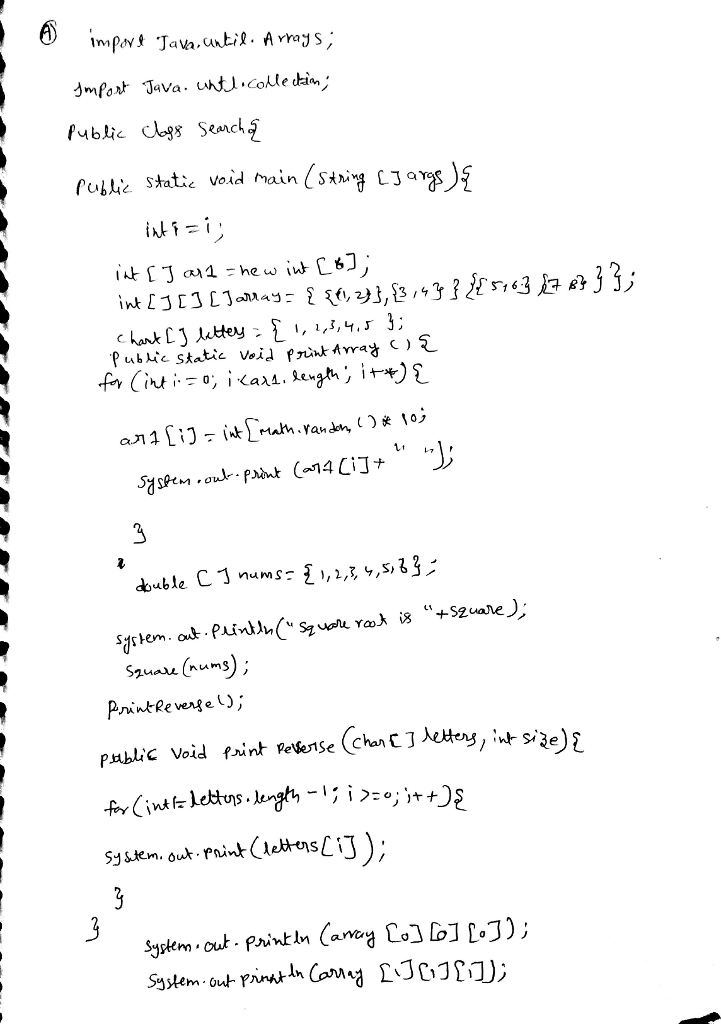 A import Java.until. Arrays;
Import Java. until.collection;
Public Class Search{
Public static void main (string [] args){
int i = i;
int [] ar1 = new int [8];
int [][][]array = { {{1,2}},{3,4} } {{5,6} {7 8} } };
chart [] letters = { 1,2,3,4,5 };
Public static void print Array () {
for (int i = 0; i<ar1. length; i++) {
ar1 [i] = int [math.random, () * 10;
System.out.print (ar1 [i]+ " ");
}
double [] nums= { 1,2,3,4,5,6};
system. out. println("square root is "+square);
square (nums);
printReverse();
public void print Reverse (char [] letters, int size) {
for (int i= letters. length -1; i >=0; i++){
system. out. print (letters [i]);
}
}
System. out. println (array [0] [0] [0]);
System. out println (array [1] [1] [1]);